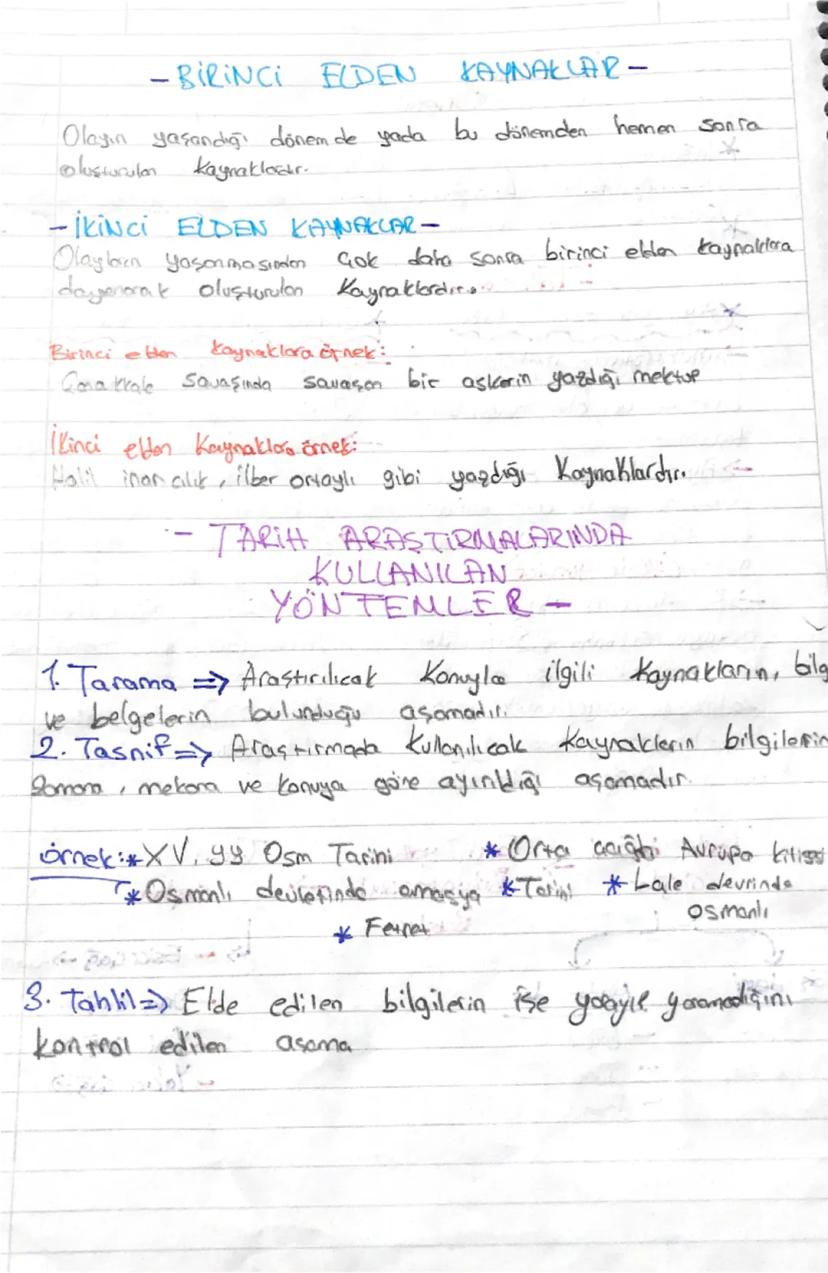 - BİRİNCİ ELDEN KAYNAKLAR -
Olayın yaşandığı dönemde yada bu dönemden hemen sonra
oluşturulan kaynaklardır.
- İKİNCİ ELDEN KAYNAKLAR -
Olayların yaşanmasından çok daha sonra birinci elden kaynaklara
dayanarak oluşturulan kaynaklardır.
Birinci elden kaynaklara örnek:
Çanakkale savaşında savaşan bir askerin yazdığı mektup
İkinci elden kaynaklara örnek:
Halil inancılık, ilber ortaylı gibi yazdığı kaynaklardır.
- TARİH ARAŞTIRMALARINDA
KULLANILAN
YÖNTEMLER -
1. Tarama => Araştırılıcak konuyla ilgili kaynakların, bilg
ve belgelerin bulunduğu aşamadır.
2. Tasnif => Araştırmada kullanılıcak kaynakların bilgilerin
zamana, mekana ve konuya göre ayırıldığı aşamadır.
örnek: * XV. yy Osm Tarihi * Orta çağda Avrupa
* Osmanlı devletinde amasya * Tarihi * Lale devrinde
osmanlı
*
3. Tahlil => Elde edilen bilgilerin işe yarayıp yaramadığını
kontrol edilen aşama